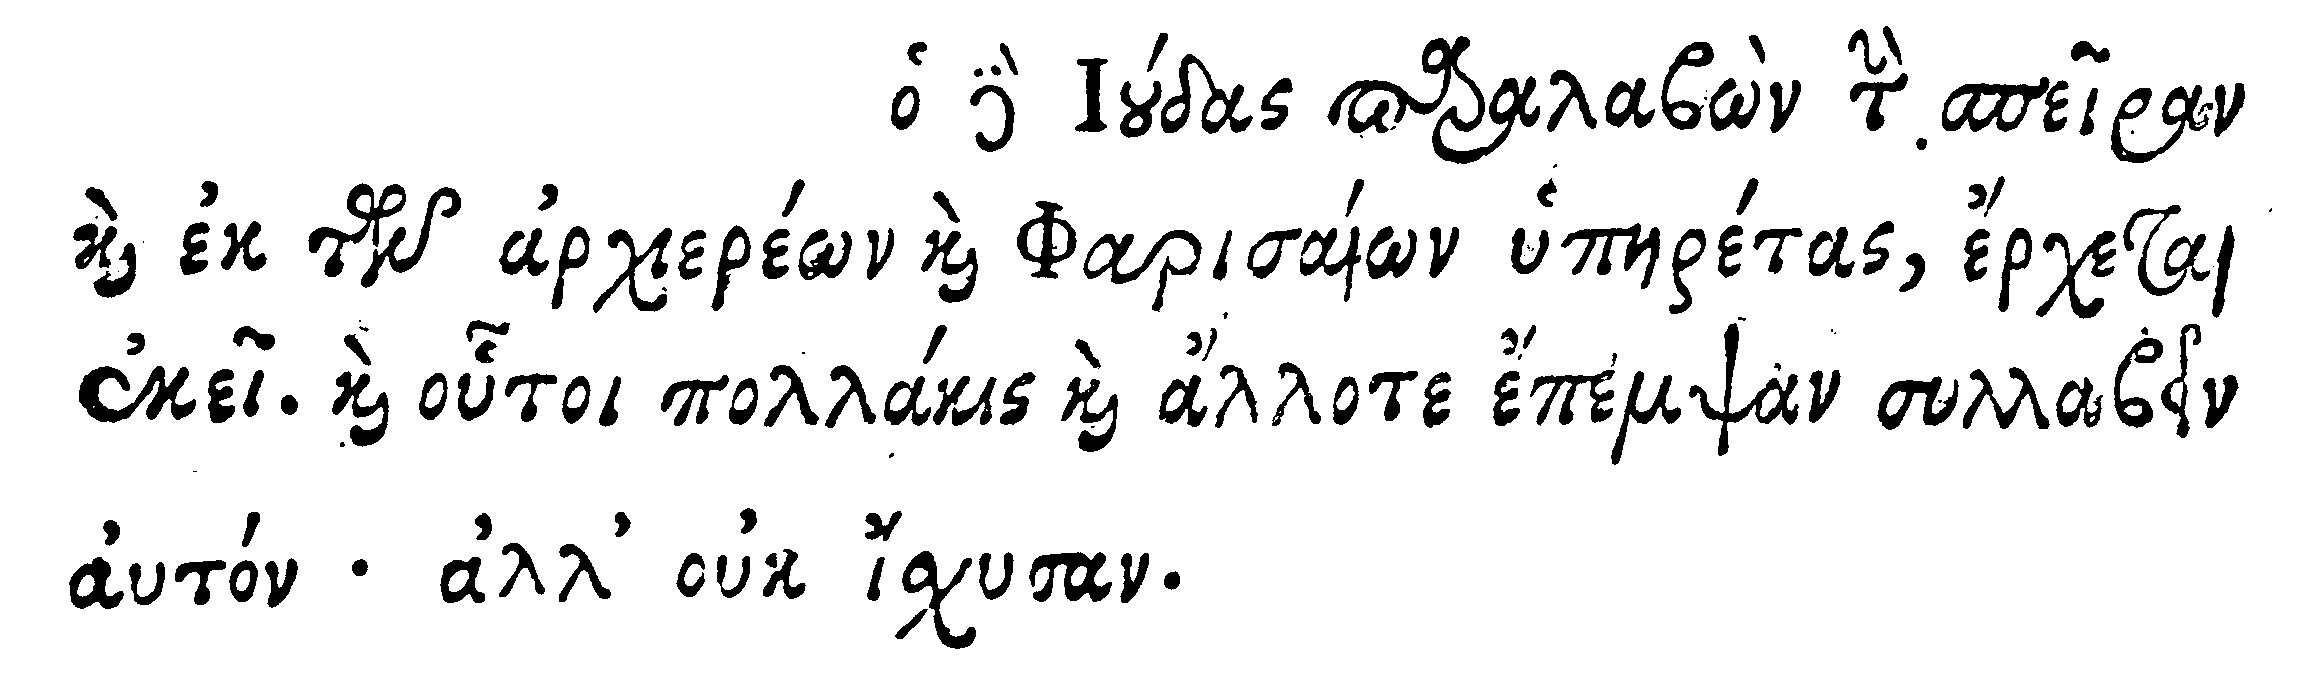 ὁ δὲ Ἰούδας παραλαβὼν τὴν σπεῖραν
καὶ ἐκ τῶν ἀρχιερέων καὶ Φαρισαίων ὑπηρέτας, ἔρχεται
ἐκεῖ. καὶ οὗτοι πολλάκις καὶ ἄλλοτε ἔπεμψαν συλλαβεῖν
αὐτόν · ἀλλ’ οὐκ ἴσχυσαν.